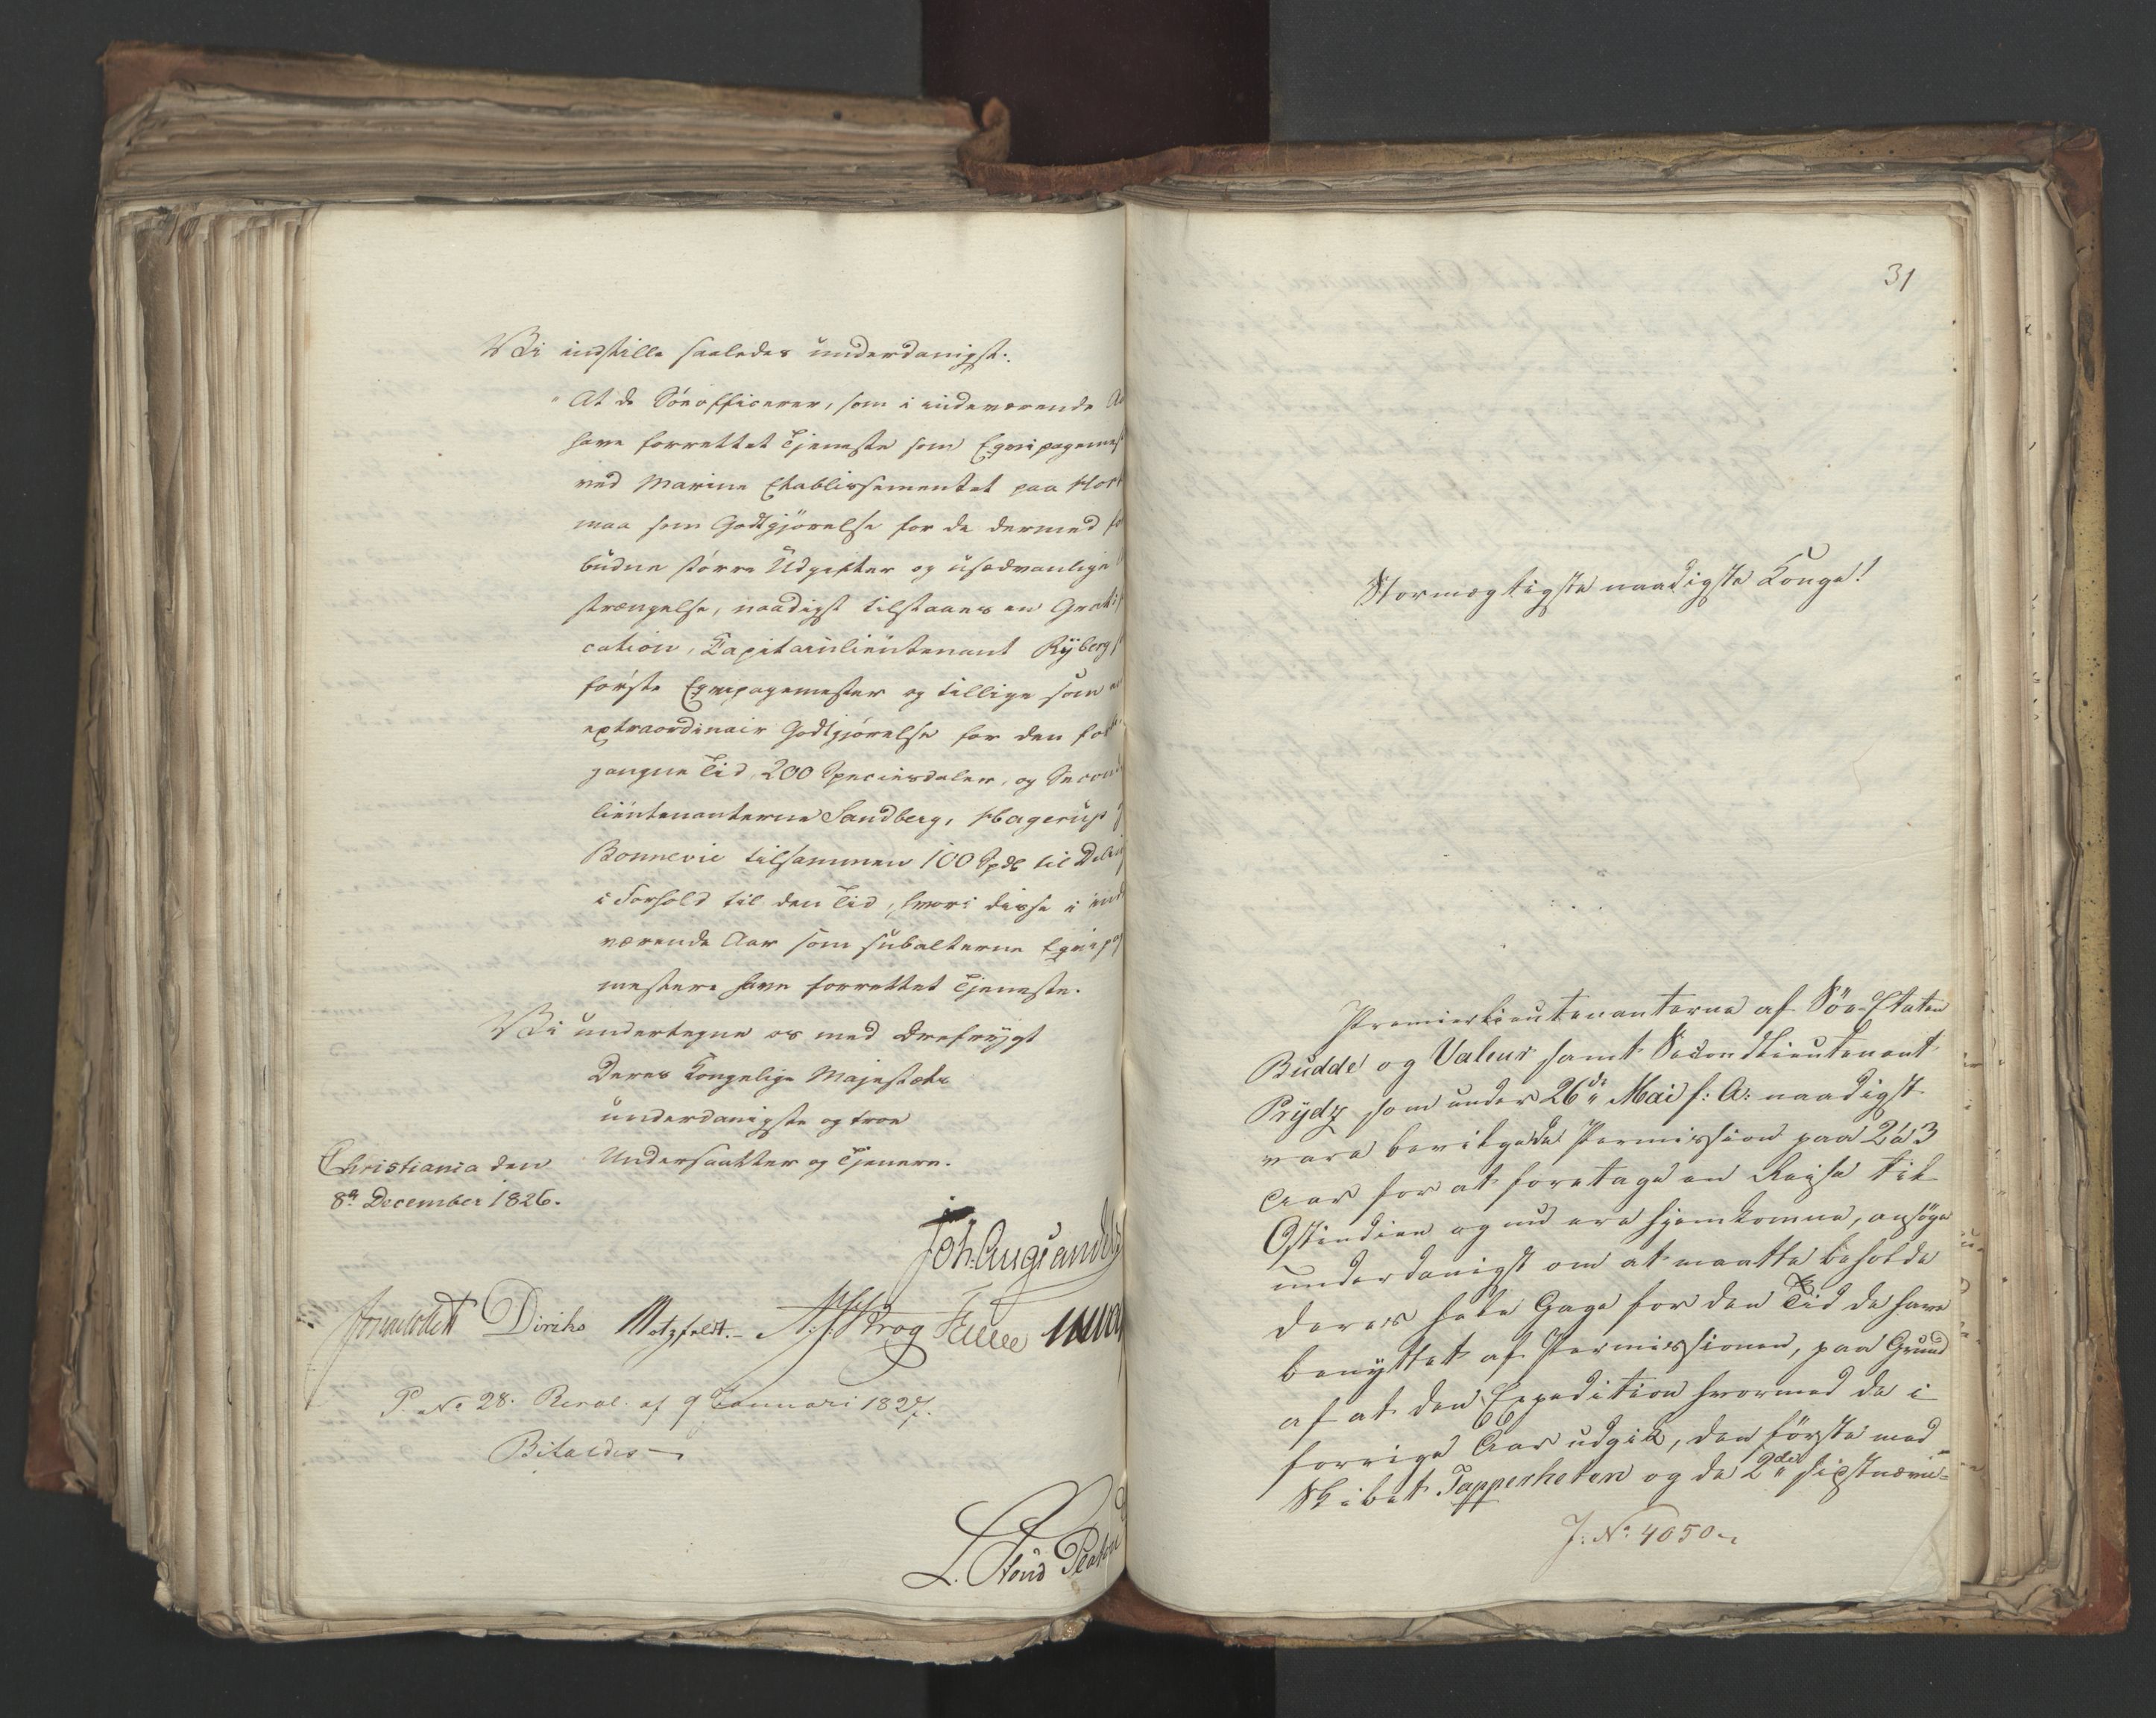 Vi indstille saaledes underdanigst:
"At de Søeofficerer, som i indeværende Aa
have forrettet Tjeneste som Eqvipagemest
ved Marine Etablissementet paa Hort
maa som Godtgjörelse for de dermed for
budne större Udgifter og usædvanlige
strængelse, naadigst tilstaaes en Gratifi
cation, Capitainlieutenant Rÿberg s
förste Eqvipagemester og tillige som en
extraordinair Godtgjörelse for den for
gangne Tid, 200 Speciesdaler, og Second
lieutenanterne Sandberg, Hagerup og
Bonnevie tilsammen 100 Spd til Deling
i Forhold til den Tid, hvori disse i inde
værende Aar som subalterne Eqvipag
mestere have forrettet Tjeneste.
Vi undertegne os med Ærefrÿgt
Deres Kongelige Majestæts
underdanigste og troe
Undersaatter og Tjenere.
Christiania den
8de December 1826.
Joh: Aug: Sandels
Diriks Motzfeldt. Krog Fasting
P. No 28. Resol. af 9 Januari 1827.
Bifaldes
31
Stormægtigste naadigste Konge!
Premierlieutenanterne af Söe-Etaten
Budde og Valeur samt Secondlieutenant
Prÿdz som under 26de Mai f: A: naadigst
vare bevilgede Permission paa 2 à 3
Aar for at foretage en Reise til
Ostindien og nu ere hjemkomne, ansöge
underdanigst om at maatte beholde
deres hele Gage for den Tid de have
benÿttet af Permissionen, paa Grund
af at den Expedition hvormed de i
forrige Aar udgik, den förste med
Skibet Tapperheten og de 2de sidstnævn-
J: No 4050